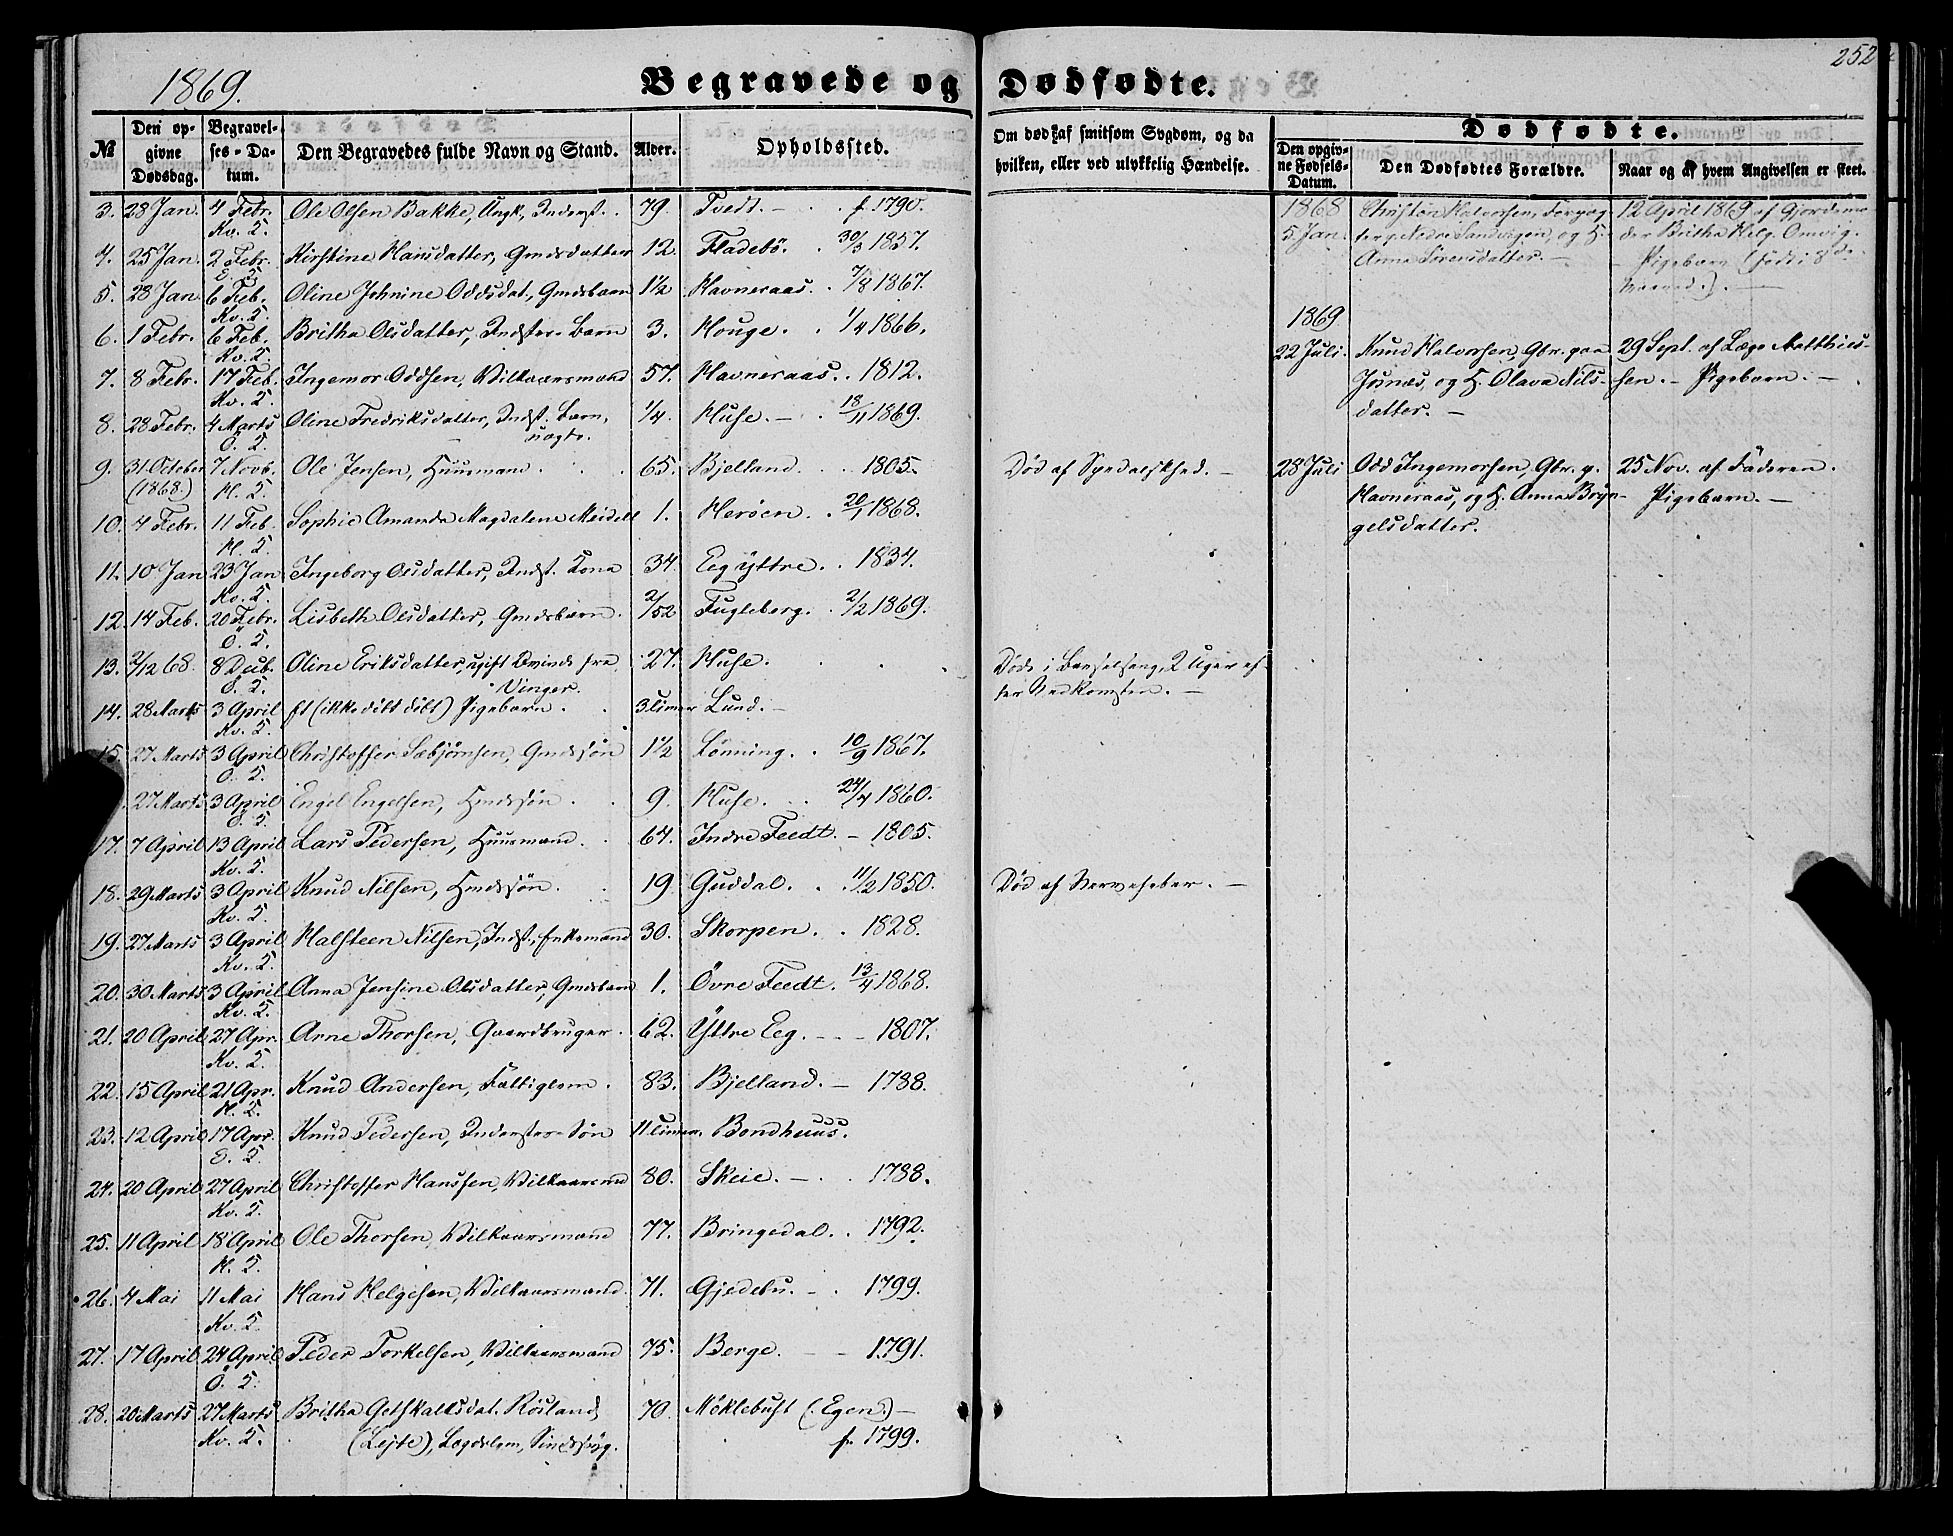 1869.
Begravede og Dødfødte.
252
№
Den opgivne Dødsdag.
Begravelses-Datum.
Den Begravedes fulde Navn og Stand.
Alder.
Opholdssted.
Om død af smitsom Sygdom, og da hvilken, eller ved ulykkelig Hændelse.
Dødfødte.
Den opgivne Fødsels-Datum.
Den Dødfødtes Forældre.
Naar og af hvem Angivelsen er skeet.
3. 28 Jan. 4 Febr. Ole Olsen Bakke, Ungk., Inderst. 79. Tvedt. f. 1790.
Kv. S.
4. 25 Jan. 2 Febr. Kirstine Hansdatter, Gmdsdatter 12. Fladebö. 30/3 1857.
5. 28 Jan. 6 Feb. Oline Johnine Oddsdat., Gmdsbarn 1½ Havneraas. 7/8 1867.
Kv. S.
6. 1 Febr. 6 Feb. Britha Olsdatter, Indster-Barn 3. Houge. 1/4 1866.
Kv. S.
7. 8 Febr. 17 Feb. Ingemor Oddsen, Vilkaarsmand 57. Havneraas. 1812.
Kv. S.
8. 28 Febr. 4 Marts Oline Fredriksdatter, Indst. Barn, 1/4. Huse. 18/11 1869.
Ö. S. uægte.
9. 31 October 7 Novb. Ole Jensen, Huusmand. 65. Bjelland. 1805. Död af Spedalskhed.
(1868.) H. S.
10. 4 Febr. 11 Feb. Sophie Amanda Magdalene Meidell 1. Heröen. 20/1 1868.
H. S.
11. 10 Jan 23 Jan Ingeborg Olsdatter, Indst. Kona 34. Eeg yttre. 1834.
Kv. S.
12. 14 Feb. 20 Febr. Lisbeth Olsdatter, Gmdsbarn. 2/52 Fugleberg. 2/2 1869.
Ö. S.
13. 2/12 68. 8 Dcb. Oline Eriksdatter, ugift Qvinde fra 27. Huse. Döde i Barselseng, 2 Uger ef-
Ö. S. Vinger. ter Nedkomsten.
14. 28 Marts 3 April et (ikke döbt) Pigebarn. 3 Timer Lund.
Kv. S.
15. 27 Marts 3 April Christoffer Sæbjörnsen, Gmdssön 1½ Lönning. 10/9 1867.
Ö. S.
27 Marts 3 April Engel Engelsen, Hmdssön. 9. Huse. 24/4 1860.
Ö. S.
17. 7 April 13 April Lars Pedersen, Huusmand. 64. Indre Feedt. 1805.
Kv. S.
18. 29 Marts 3 April Knud Nilsen, Hmdssön. 19. Guddal. 11/2 1850. Död af Nervefeber.
Kv. S.
19. 27 Marts 3 April Halsteen Nilsen, Indst., Enkemand 30. Skorpen. 1828.
Kv. S.
20. 30 Marts 3 April Anna Jensine Olsdatter, Gmdsbarn 1. Övre Feedt. 13/4 1868.
Kv. S.
21. 20 April 27 Apr. Arne Thorsen, Gaardbruger. 62. Yttre Eeg. 1807.
Kv. S.
22. 15 April 21 Apr. Knud Andersen, Fattiglem. 83. Bjelland. 1788.
H. S.
23. 12 April 17 Apr. Knud Pedersen, Inderster-Sön 11 Timer. Bondhuus.
24. 20 April 27 April Christoffer Hansen, Vilkaarsmd 80. Skeie. 1788.
Kv. S.
25. 11 April 18 April Ole Thorsen, Vilkaarsmand 77. Bringedal. 1792.
H. S.
26. 4 Mai 11 Mai Hans Helgesen, Vilkaarsmand. 71. Gjedebu. 1799.
Kv. S.
27. 17 April 24 April Peder Torkelsen, Vilkaarsmand 75. Berge. 1791.
Ö. S.
28. 20 Marts 27 Marts Britha Gotskalksdat. Rösland 70. Möklebust (Egen)
Kv. S. (Lejte), Lægdslem, Sindssyg. f. 1799.
1868 Christen Halvorsen, Forpag- 12 April 1869 af Gjordemo-
5 Jan. ter p. Nedre Sandvigen, og H. der Britha Helg. Omvig.
Anna Sörensdatter. Pigebarn (födt i 8de
Maaned.).
1869
22 Juli. Knud Halvorsen, Gbr. paa 29 Sept. af Læge Matthies-
Jusnæs, og H. Olava Nils- sen. - Pigebarn.
datter.
28 Juli Odd Ingemorsen, Gbr. p. 25 Nov. af Faderen.
Havneraas, og H. Anna Bryn- Pigebarn.
gelsdatter.